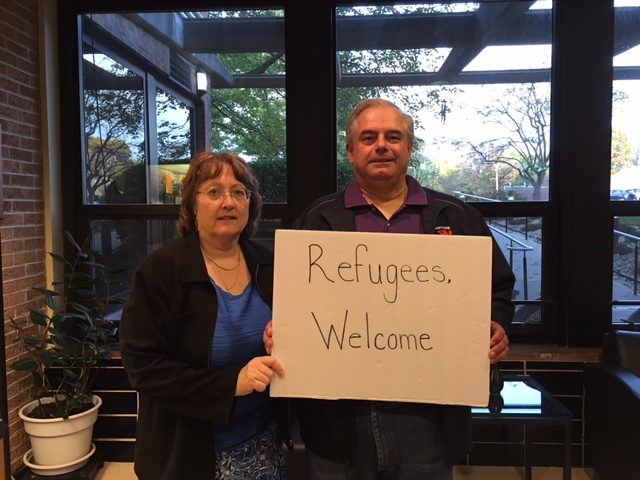 Refugees,
Welcome